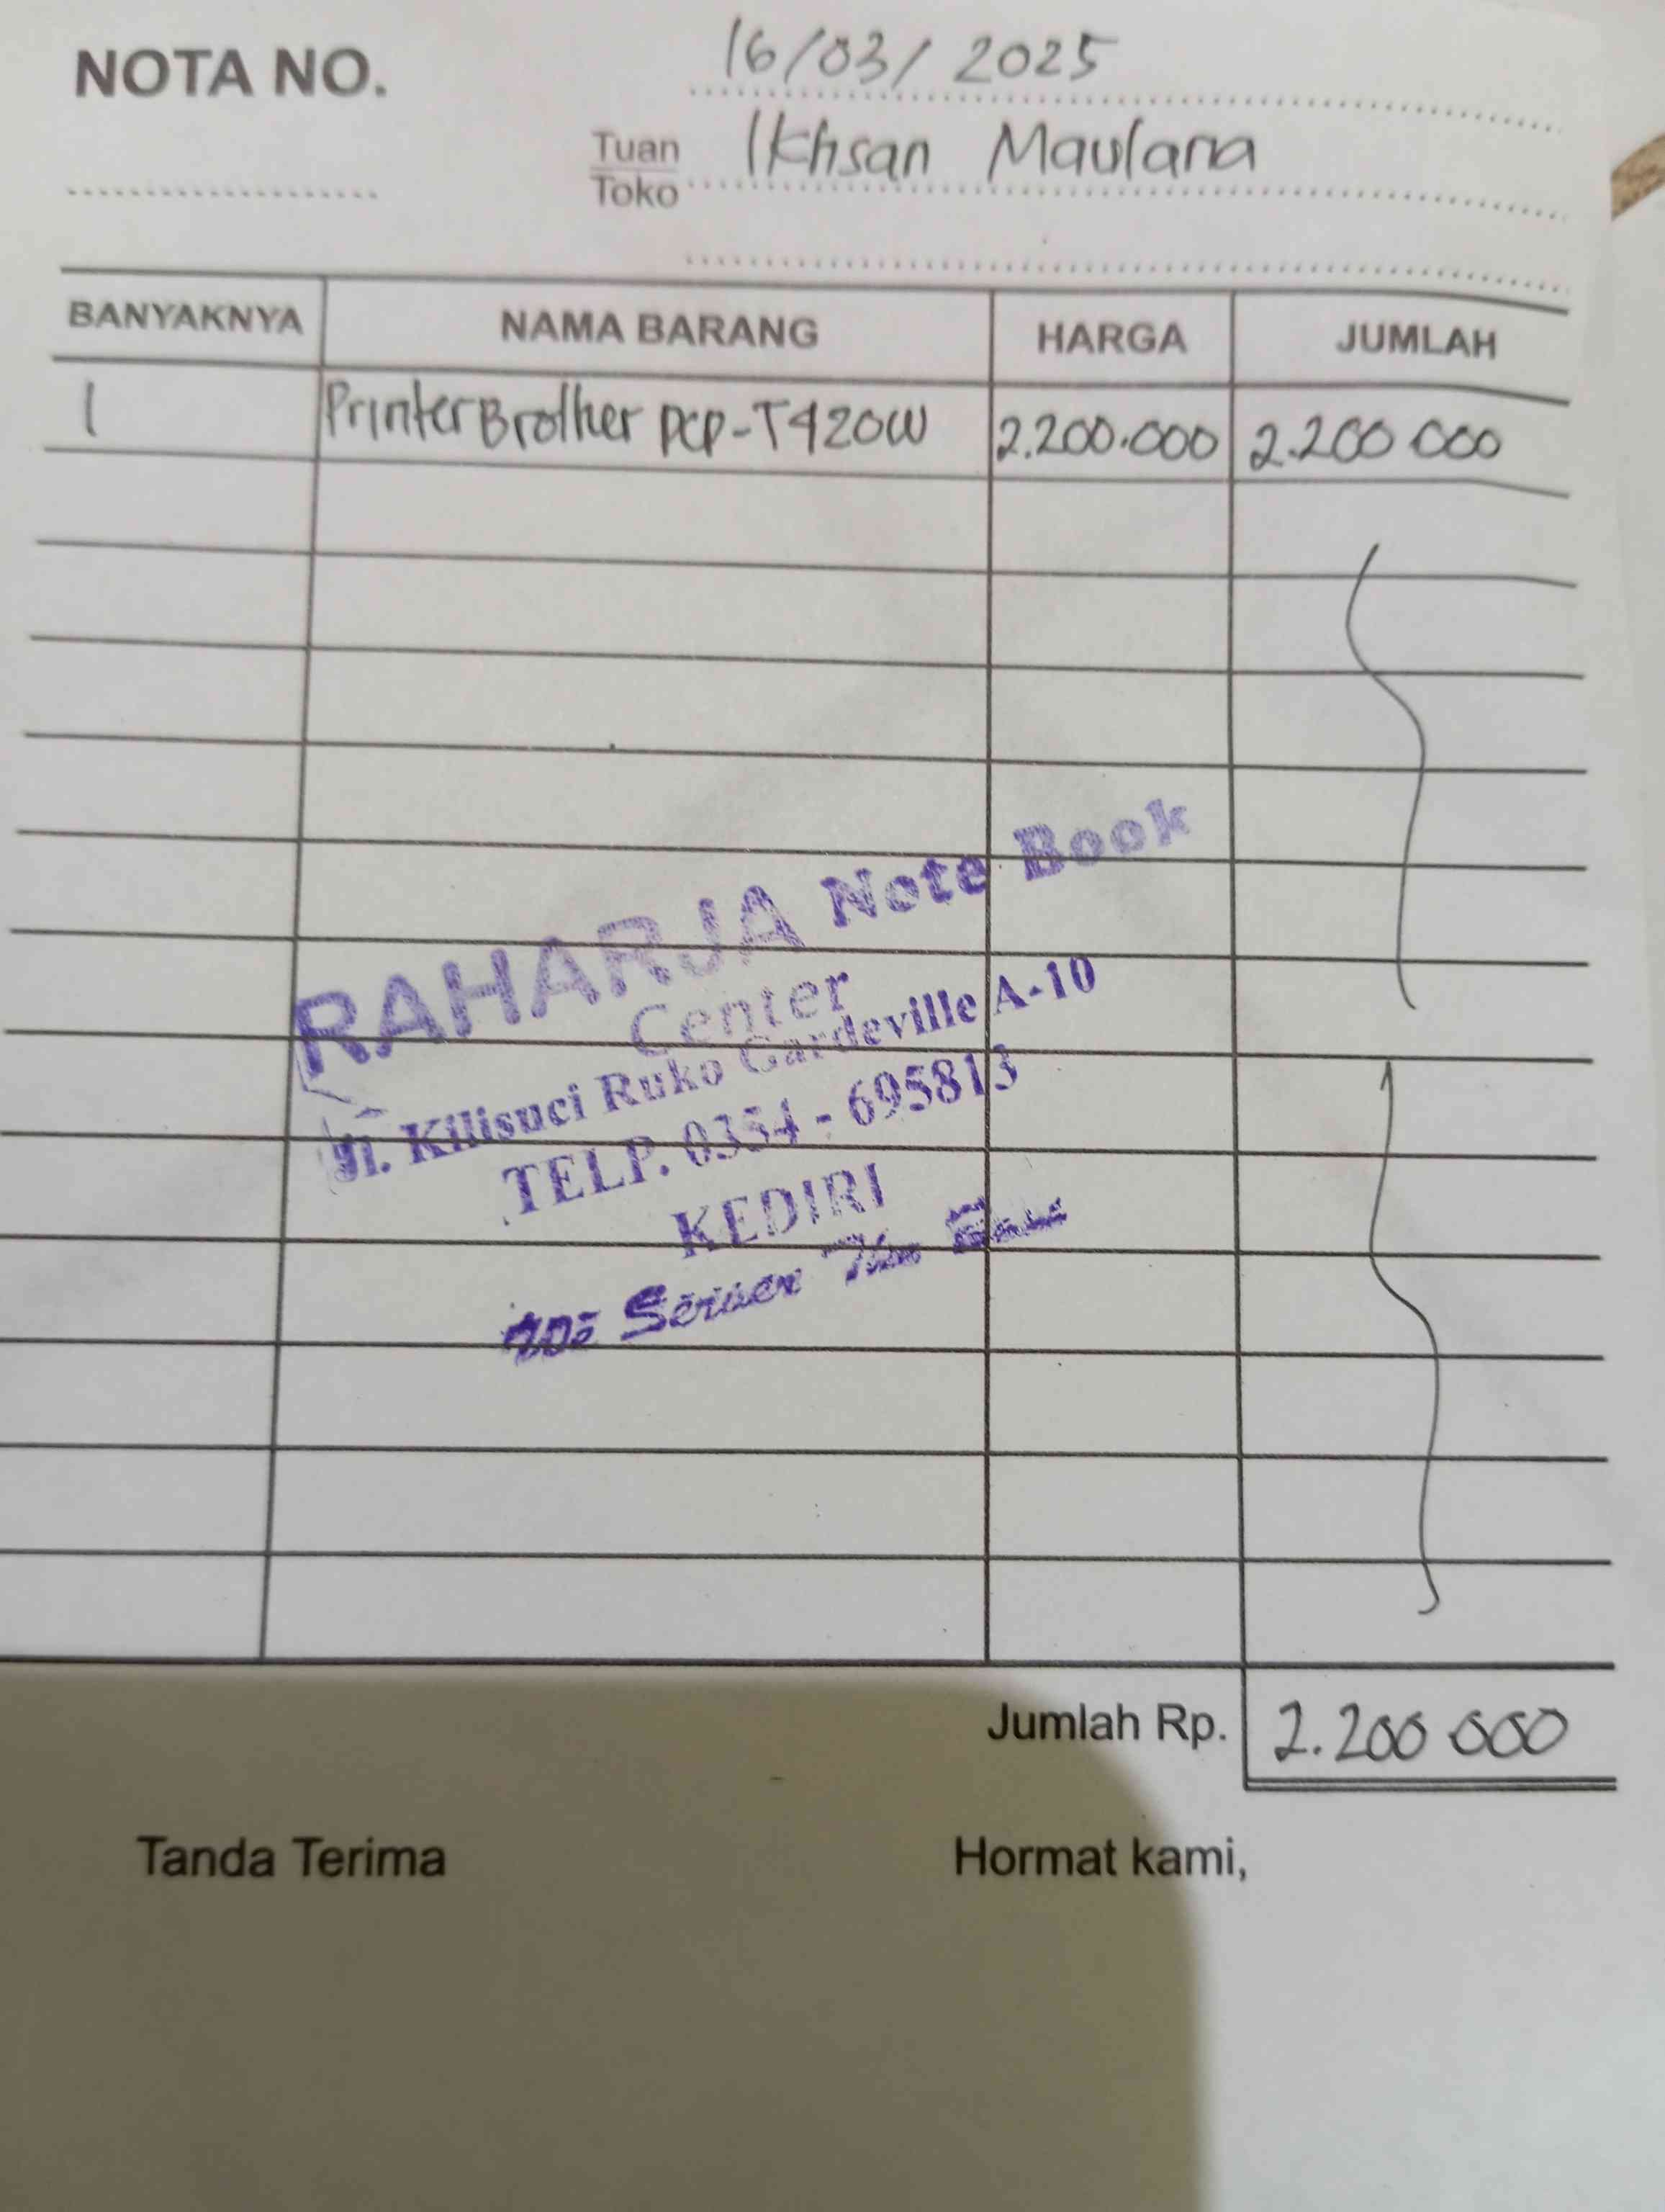 NOTA NO.
16/03/2025
Tuan
Toko
Ikhsan Maulana
BANYAKNYA NAMA BARANG HARGA JUMLAH
1 Printer Brother DCP-T420W 2.200.000 2.200 000
RAHARJA Note Book
Center
Jl. Kilisuci Ruko Gardeville A-10
TELP. 0354 - 695813
KEDIRI
Jumlah Rp. 2.200 000
Tanda Terima Hormat kami,